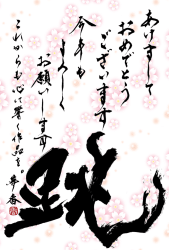 あけまして
おめでとう
ございます
今年も
よろしく
お願いします
これからも心に響く作品を。